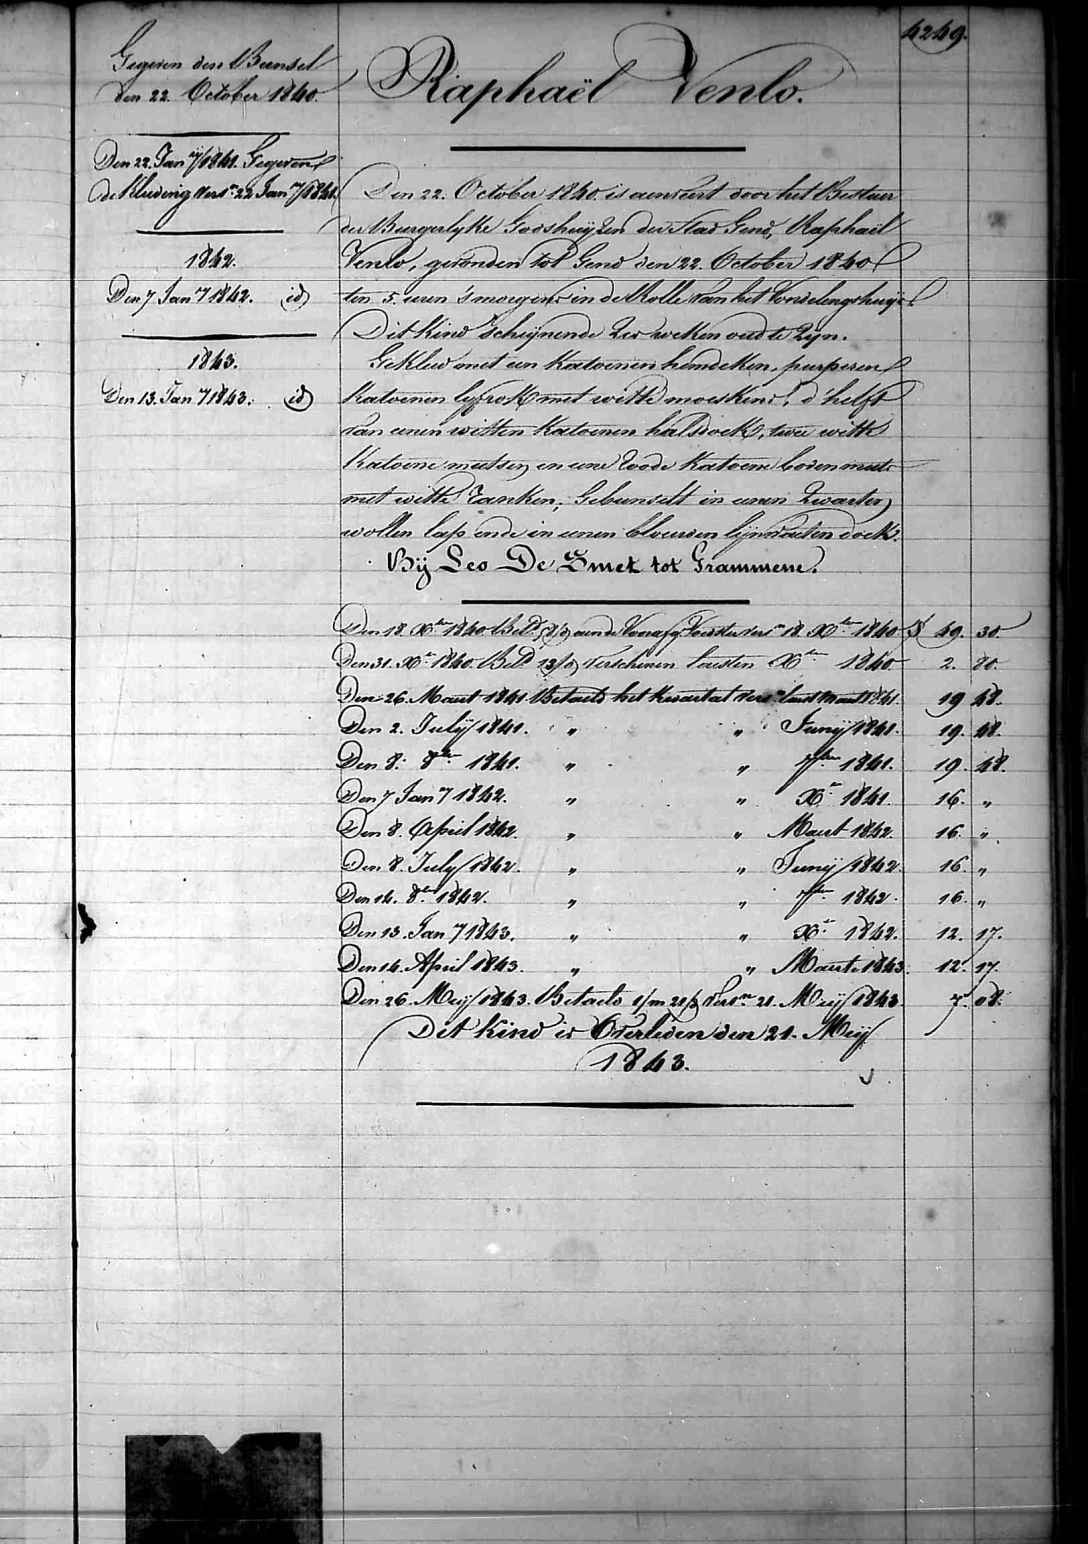 4249.
Gegeven den Bunsel
den 22. October 1840.
Den 22. Jan.ry 1841. Gegeven
de Kleeding vers.n 22 Jan.ry 1841.
1842.
Den 7 Jan.ry 1842. id
1843.
Den 13. Jan.ry 1843. id
Raphaël Venlo.
Den 22. October 1840 is aenveert door het Bestuer
der Burgerlyke Godshuyzen der Stad Gend, Raphaël
Venlo, gevonden tot Gend den 22. October 1840
ten 5. uren 's morgens in de Rolle van het Vondelingshuys.
Dit kind schijnende zes weken oud te zyn.
Gekleed met een katoenen hemdeken, purperen
katoenen lyfrok met witte moeskens, d'helft
van eenen witten katoenen halsdoek, twee witte
katoene mutsen en eene roode katoene bovenmuts
met witte ranken; Gebunselt in eenen zwarten
wollen lap ende in eenen blauwen lijnwaeten doek.
Bij Leo De Smet tot Grammene.
Den 18. X.er 1840 Bet.d aen de Voorafg. Voedster vers.n 18. X.er 1840 49. 30.
Den 31. X.er 1840. Bet.d 13/d verschenen lausten X.er 1840 2. 80.
Den 26. Maert 1841 Betaeld het kwartael vers.n laust maert 1841. 19 48.
Den 2. Julij 1841. " " Junij 1841. 19. 48.
Den 8. 8.er 1841. " " 7ber 1841. 19. 48.
Den 7 Jan.ry 1842. " " X.er 1841. 16. "
Den 8. April 1842. " " Maert 1842. 16. "
Den 8. July 1842. " " Junij 1842. 16. "
Den 14. 8.er 1842. " " 7ber 1842. 16. "
Den 13. Jan.ry 1843. " " X.er 1842. 12. 17.
Den 14. April 1843. " " Maert 1843. 12. 17.
Den 26. Meij 1843. Betaeld 1/m 21/d vers.n 21. Meij 1843 7. 08.
Dit kind is Overleden den 21. Meij
1843.